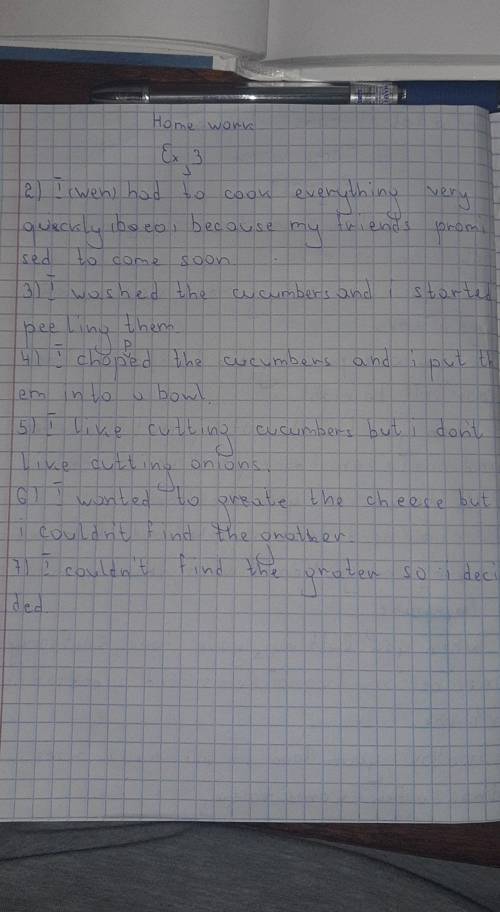 Home work
Ex 3
2) I (wen) had to cook everything very
quickly, because my friends promi
sed to come soon
3) I washed the cucumbers and i started
peeling them.
4) I chopped the cucumbers and i put th
em into a bowl.
5) I like cutting cucumbers but i dont
like cutting onions.
6) I wanted to greate the cheese but
i couldn't find the
7) I couldn't find the grater so i deci
ded.